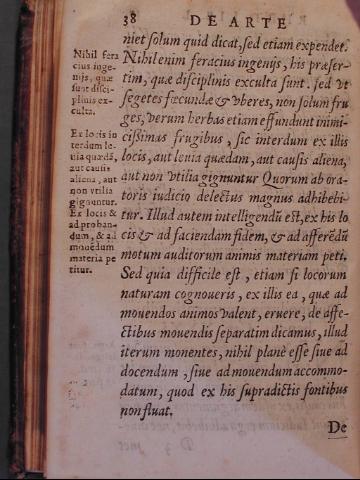 38 DE ARTE
niet solum quid dicat, sed etiam expendet.
Nihil enim feracius ingenijs, his præser-
tim, quæ disciplinis exculta sunt. sed vt
segetes fœcundæ & vberes, non solum fru
ges, verum herbas etiam effundunt inimi-
cissimas frugibus, sic interdum ex illis
locis, aut leuia quædam, aut causis aliena,
aut non vtilia gignuntur Quorum ab ora-
toris iudicio delectus magnus adhibebi-
tur. Illud autem intelligendū est, ex his lo
cis & ad faciendam fidem, & ad afferēdū
motum auditorum animis materiam peti.
Sed quia difficile est, etiam si locorum
naturam cognoueris, ex illis ea, quæ ad
mouendos animos valent, eruere, de affe-
ctibus mouendis separatim dicamus, illud
iterum monentes, nihil planè esse siue ad
docendum, siue ad mouendum accommo-
datum, quod ex his supradictis fontibus
non fluat.
De
Nihil fera
cius inge-
nijs, quæ
sunt disci-
plinis ex-
culta.
Ex locis in
terdum le-
uia quædā,
aut causis
aliena, aut
non vtilia
gignuntur.
Ex locis &
ad proban-
dum, & ad
mouēdum
materia pe
titur.